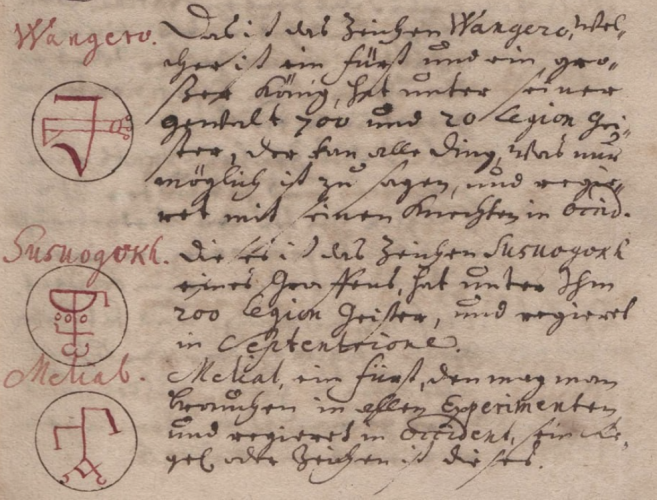 Wangero.
Das ist das Zeichen Wangero, wel-
cher ist ein fürst und ein gro-
ßer König, hat unter seiner
gewalt 700 und 20 Legion Gei-
ster, der kan alle ding, was nur
möglich ist zu sagen, und regie-
ret mit seinen Knechten in Occid.
Susuogokh.
Dieses ist das Zeichen Susuogokh
eines Graffens, hat unter Ihm
200 Legion Geister, und regieret
in Septentrione.
Meliab.
Meliab, ein fürst, den mag man
brauchen in allen Experimenten
und regieret in Occident, sein Sie-
gel oder Zeichen ist dieses.